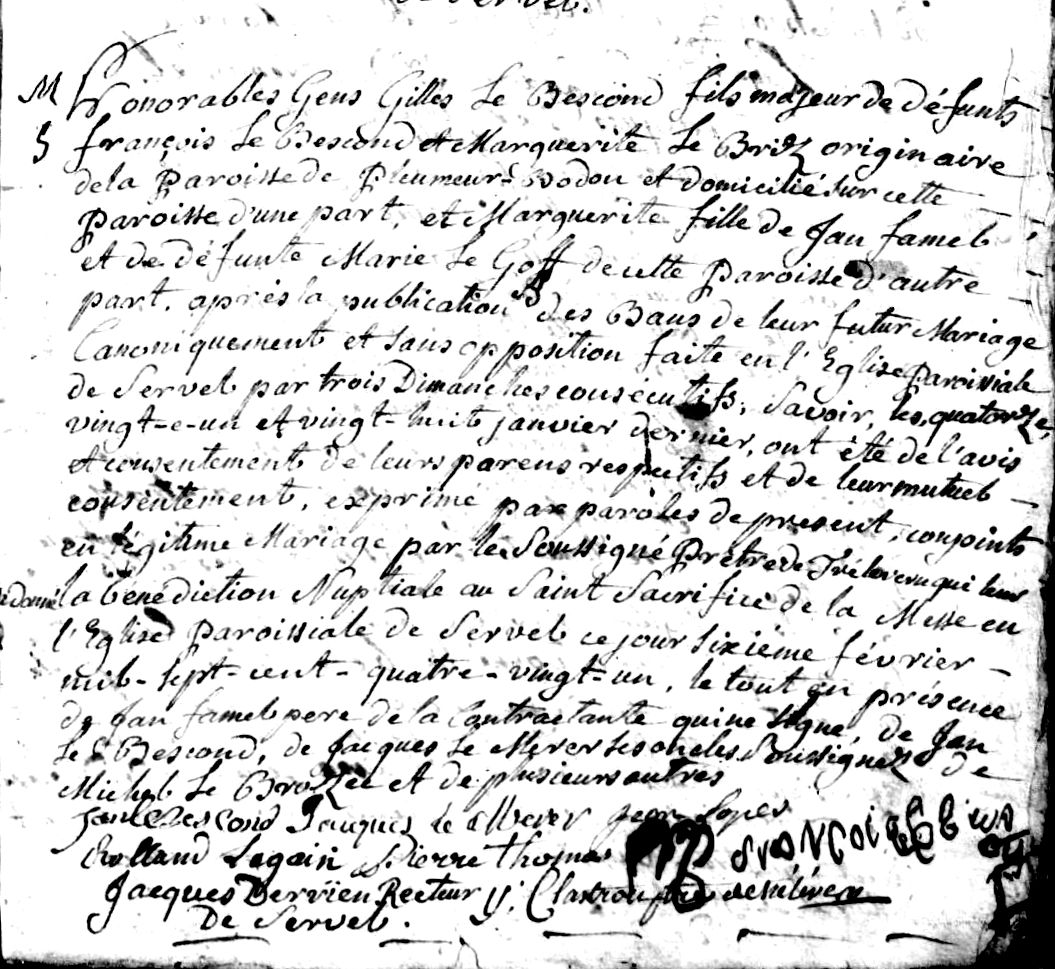 de Servel.
M Honorables Gens Gilles Le Bescond fils majeur de défunts
françois Le Bescond et Marguerite Le Briz originaire
dela Paroisse de Pleumeur-Bodou et domicilié sur cette
Paroisse d'une part, et Marguerite fille de Jan famel
et de défunte Marie Le Goff de cette Paroisse d'autre
part, après la publication des Bans de leur futur Mariage
Canoniquement et sans opposition faite en l'Eglise Paroissiale
de Servel par trois Dimanches consécutifs, Savoir, les quatorze,
vingt-e-un et vingt-huit janvier dernier, ont été de l'avis
et consentement de leurs parens respectifs et de leur mutuel
consentement, exprimé par paroles de present, conjoints
en légitime Mariage par le Soussigné Prêtre de Trélevern qui leur
a donné la bénédiction Nuptiale au Saint Sacrifice de la Messe en
l'Eglise Paroissiale de Servel ce jour sixiéme février
mil-sept-cent-quatre-vingt-un, le tout en présence
de Jan famel pere de la Contractante qui ne signe, de Jan
Le Bescond, de Jacques Le Merer ses oncles Soussignez de
Michel Le Brozec et de plusieurs autres
Jan Le Bescond Jacques Le Merer
Rolland Lagain Pierre thomas françois
Jacques Dervien Recteur y:
De Servel.